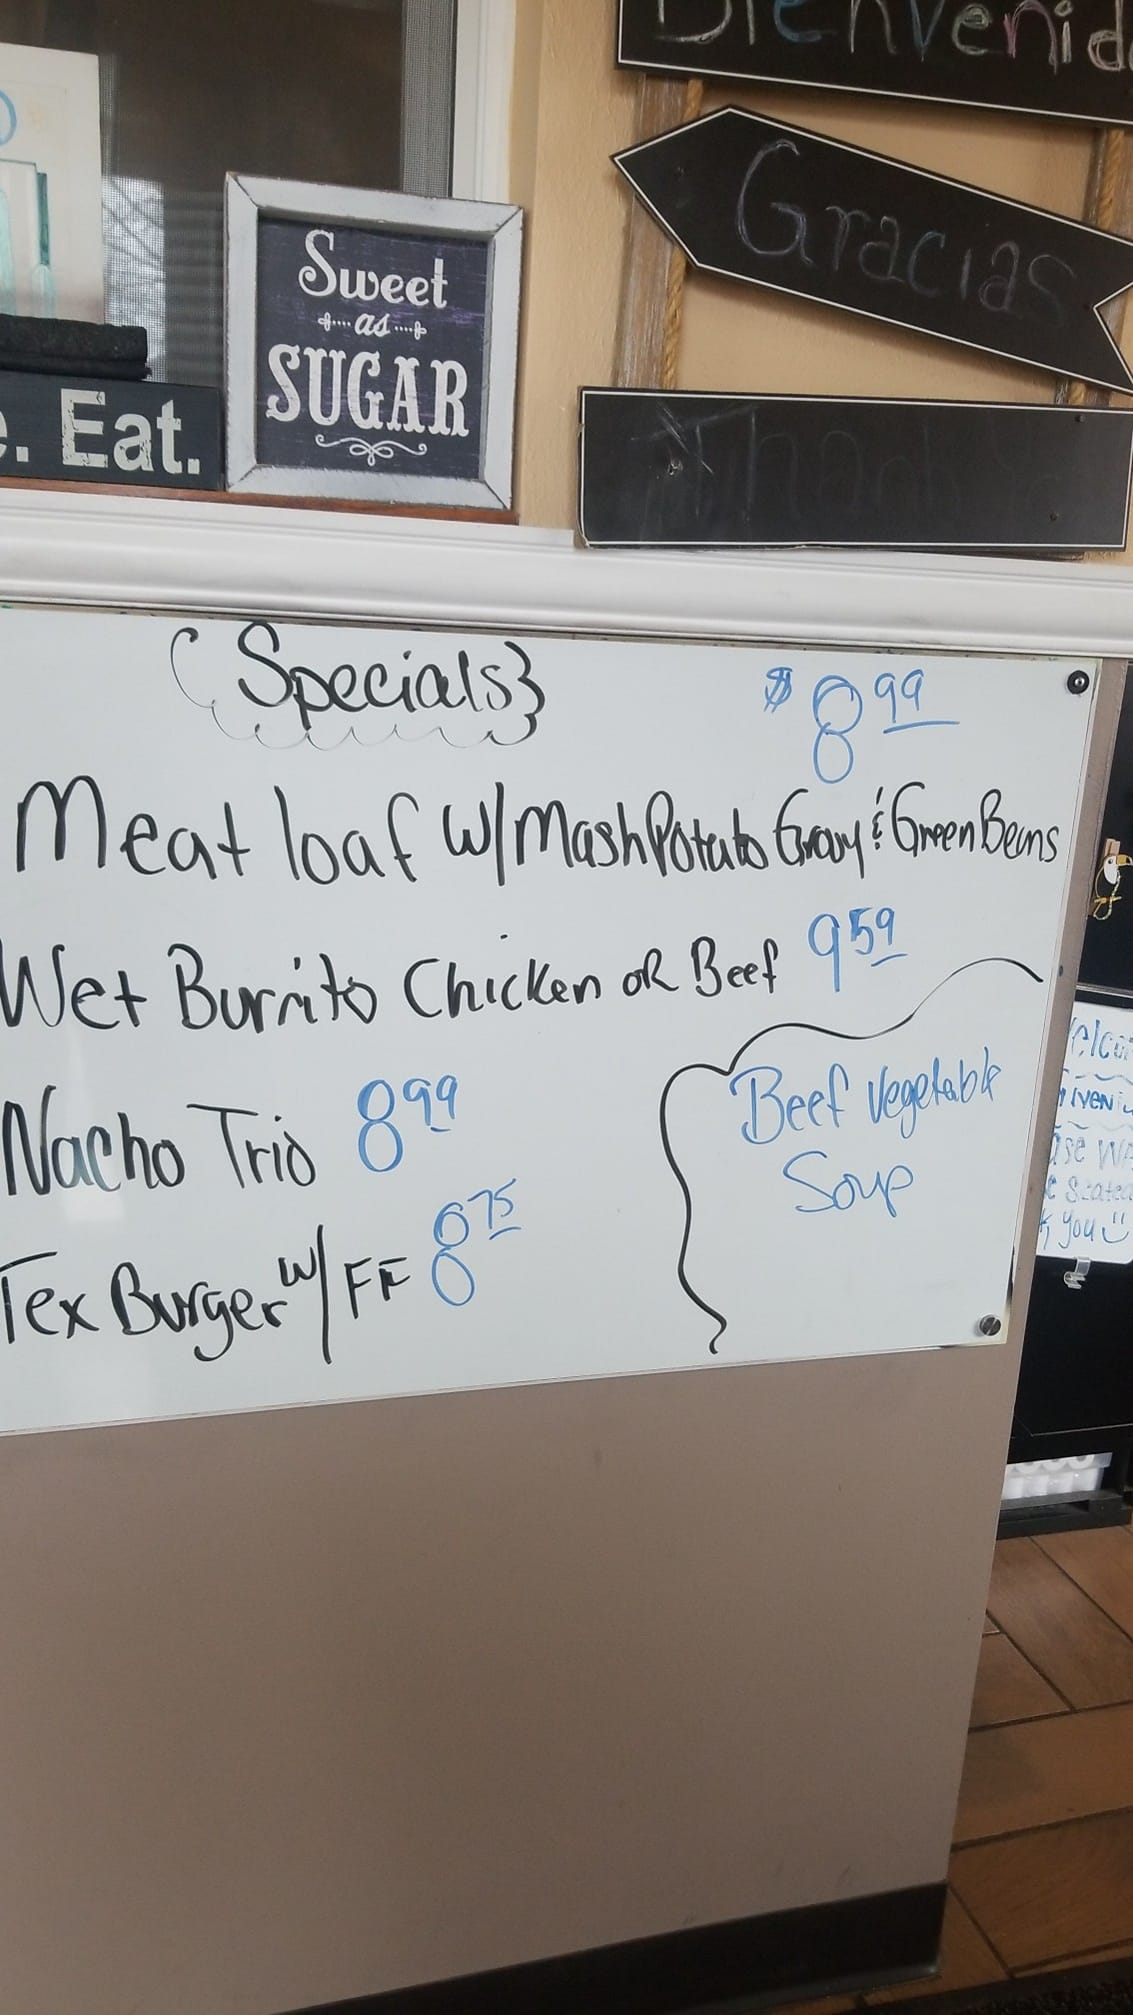 Bienvenid
Gracias
Thank
Sweet
as
SUGAR
. Eat.
{Specials}
$8.99
Meat loaf w/Mash Potato Gravy & Green Beans
Wet Burrito Chicken oR Beef 9.59
Nacho Trio 8.99
Tex Burger w/FF 8.75
Beef Vegetable
Soup
You